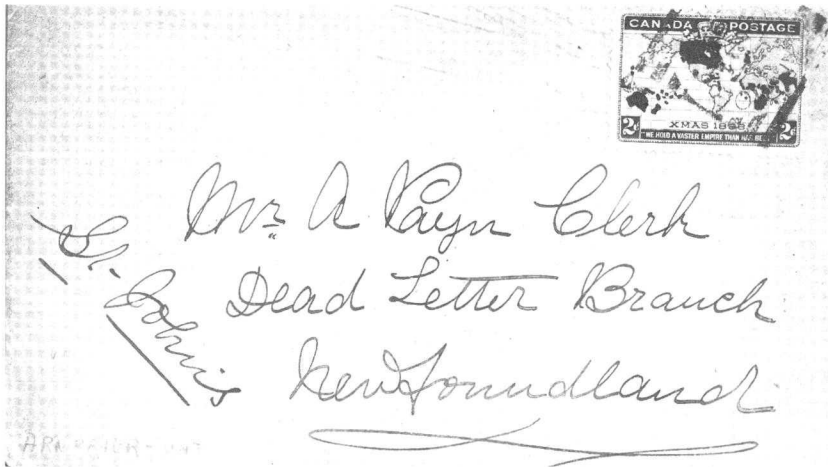 CANADA POSTAGE
XMAS 1898
2c 2c
"WE HOLD A VASTER EMPIRE THAN HAS BEEN"
Mr. A Payn Clerk
Dead Letter Branch
Newfoundland
St. John's